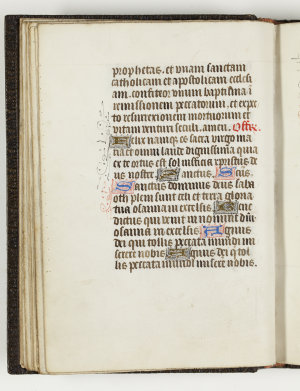 prophetas. et vnam sanctam
catholicam et apostolicam ecclesi
am. confiteor vnum baptisma i
remissionem peccatorum. et expec
to resurrexionem mortuorum et
vitam venturi seculi. amen. Offre.
Felix namque es sacra virgo ma
ria et omni laude dignissima quia
ex te ortus est sol iusticie xpristus de
us noster. Sanctus. Sctus.
Sanctus dominus deus saba
oth pleni sunt celi et terra gloria
tua osanna in excelsis. Bene
dictus qui venit in nomine dni
osanna in excelsis. Agnus
dei qui tollis peccata mundi mi
serere nobis. Agnus
dei q tol
lis peccata mundi miserere nobis.